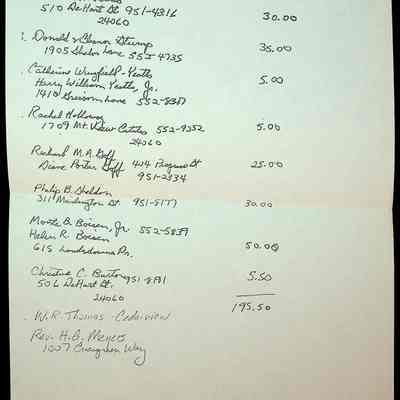 510 DeHart St. 951-4316 30.00
24060
Donald & Eleanor Stump 35.00
1905 Shelor Lane 552-4735
Catherine Wingfield-Yeatts 5.00
Harry William Yeatts, Jr.
1410 Grissom Lane 552-8387
Rachel Holloway 5.00
1709 Mt. View 552-9352
24060
Richard M.A. Goff 404 Progress St 25.00
Diane Porter Goff 951-2334
Philip B. Sheldon
311 Washington St. 951-5177 30.00
Monte B. Boisen, Jr 552-5839
Helen R. Boisen 50.00
615 Landsdowne Dr.
Christine C. Burton 951-8791 5.50
506 DeHart St.
24060
195.50
W.R. Thomas - Cedarview
Rev. H.G. Meyers
1007 Evergreen Way